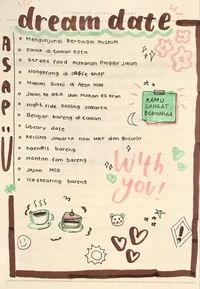 dream date
ASAP!!
Mengunjungi berbagai museum
Piknik di taman kota
Street food makanan pinggir jalan
Nongkrong di cafe shop
Makan Suani di Aeon Mall
Jalan ke IKEA dan makan es krim
Night ride keliling Jakarta
Belajar bareng di taman
Library date
Keliling Jakarta naik MRT dan Busway
ngevlog bareng
Nonton film bareng
Jajan
Ice skating bareng
KAMU
SANGAT
BERHARGA
With
you!